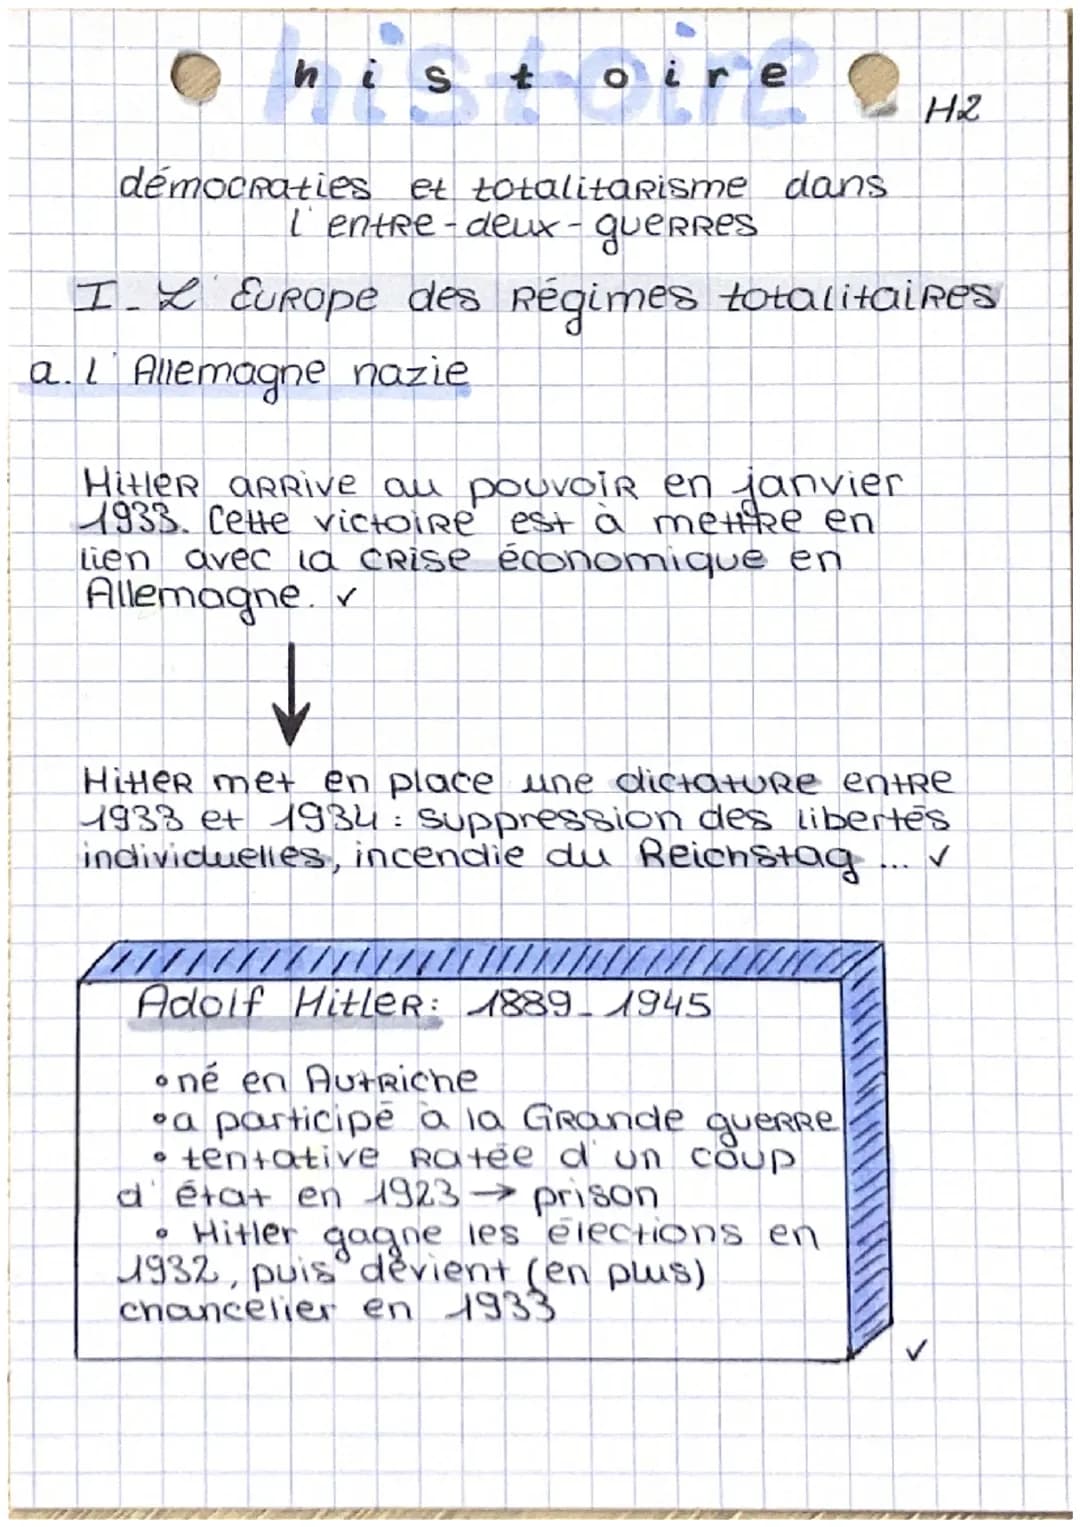 histoire
histoire
H2
démocraties et totalitarisme dans
l'entre-deux-guerres
I-L'Europe des régimes totalitaires
a. l'Allemagne nazie
Hitler arrive au pouvoir en janvier
1933. Cette victoire est à mettre en
lien avec la crise économique en
Allemagne. ✓
Hitler met en place une dictature entre
1933 et 1934 : suppression des libertés
individuelles, incendie du Reichstag ... ✓
Adolf Hitler: 1889-1945
• né en Autriche
• a participé à la Grande guerre
• tentative ratée d'un coup
d'état en 1923 → prison
• Hitler gagne les élections en
1932, puis devient (en plus)
chancelier en 1933
✓